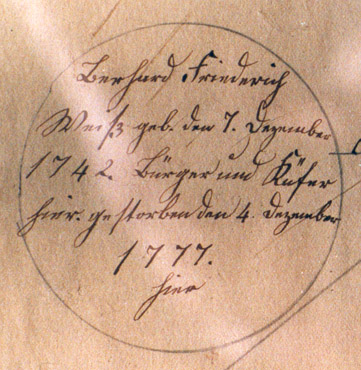 Berhard Friederich
Weiß geb. den 7. Dezember
1742. Bürger und Küfer
hier. gestorben den 4. Dezember
1777.
hier